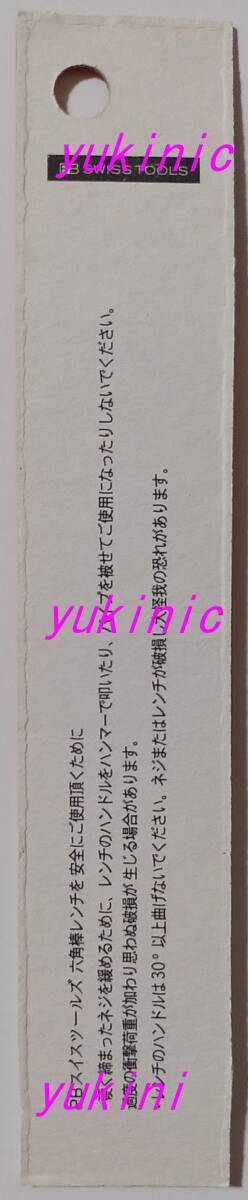 yukinic
PB SWISS TOOLS
yukinic
PBスイスツールズ 六角棒レンチを 安全にご使用頂くために
硬く締まったネジを緩めるために、レンチのハンドルをハンマーで叩いたり、パイプを被せてご使用になったりしないでください。
過度の衝撃荷重が加わり思わぬ破損が生じる場合があります。
・レンチのハンドルは30°以上曲げないでください。ネジまたはレンチが破損し大怪我の恐れがあります。
yukini